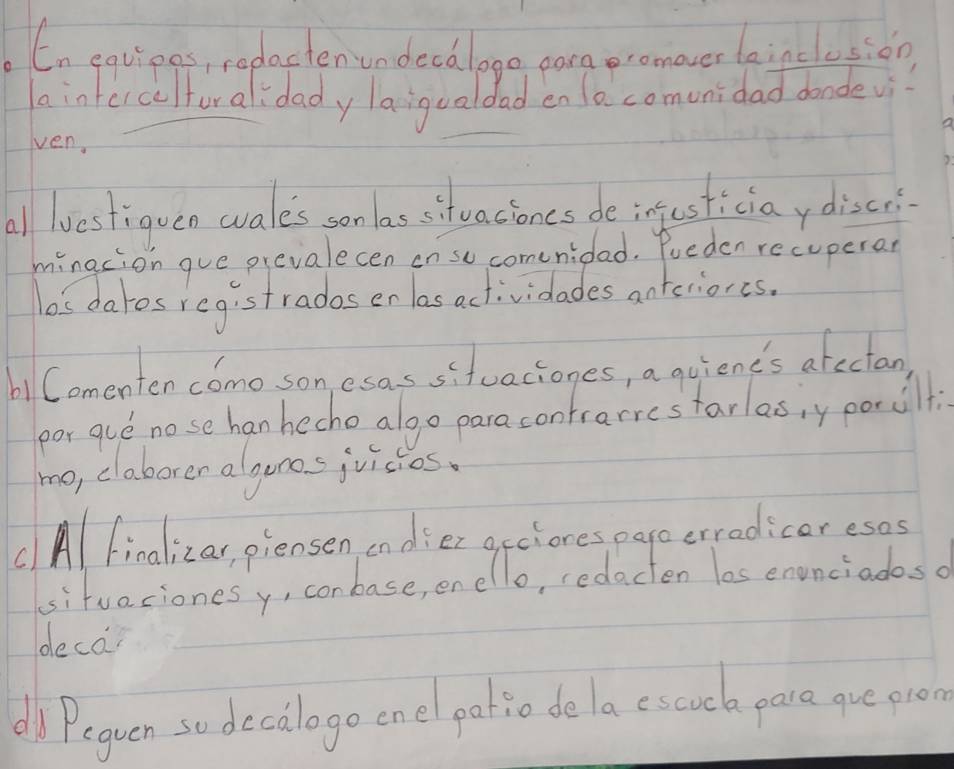 En equipos, redacten un decálogo para promover la inclusión,
la interculturalidad y la igualdad en la comunidad donde vi-
ven.
a) Ivestiguen cuales son las situaciones de injusticia y discri-
minación que prevalecen en su comunidad. Pueden recuperar
los datos registrados en las actividades anteriores.
b) Comenten cómo son esas situaciones, a quiénes afectan,
por qué no se han hecho algo para contrarrestarlas, y por últi-
mo, elaboren algunos juicios.
c) Al finalizar, piensen en diez acciones para erradicar esas
situaciones y, con base, en ello, redacten los enunciados d
decá
d) Peguen su decálogo en el patio de la escuela para que prom